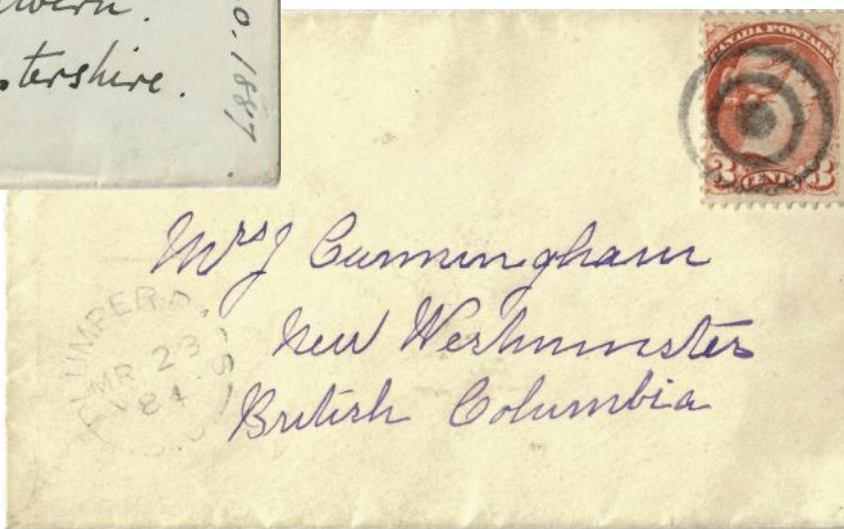 lvern.
tershire.
0. 1887
CANADA POSTAGE
3 CENTS 3
Mrs J Cunningham
New Westminster
British Columbia
PLUMPER PASS
MR 23
84